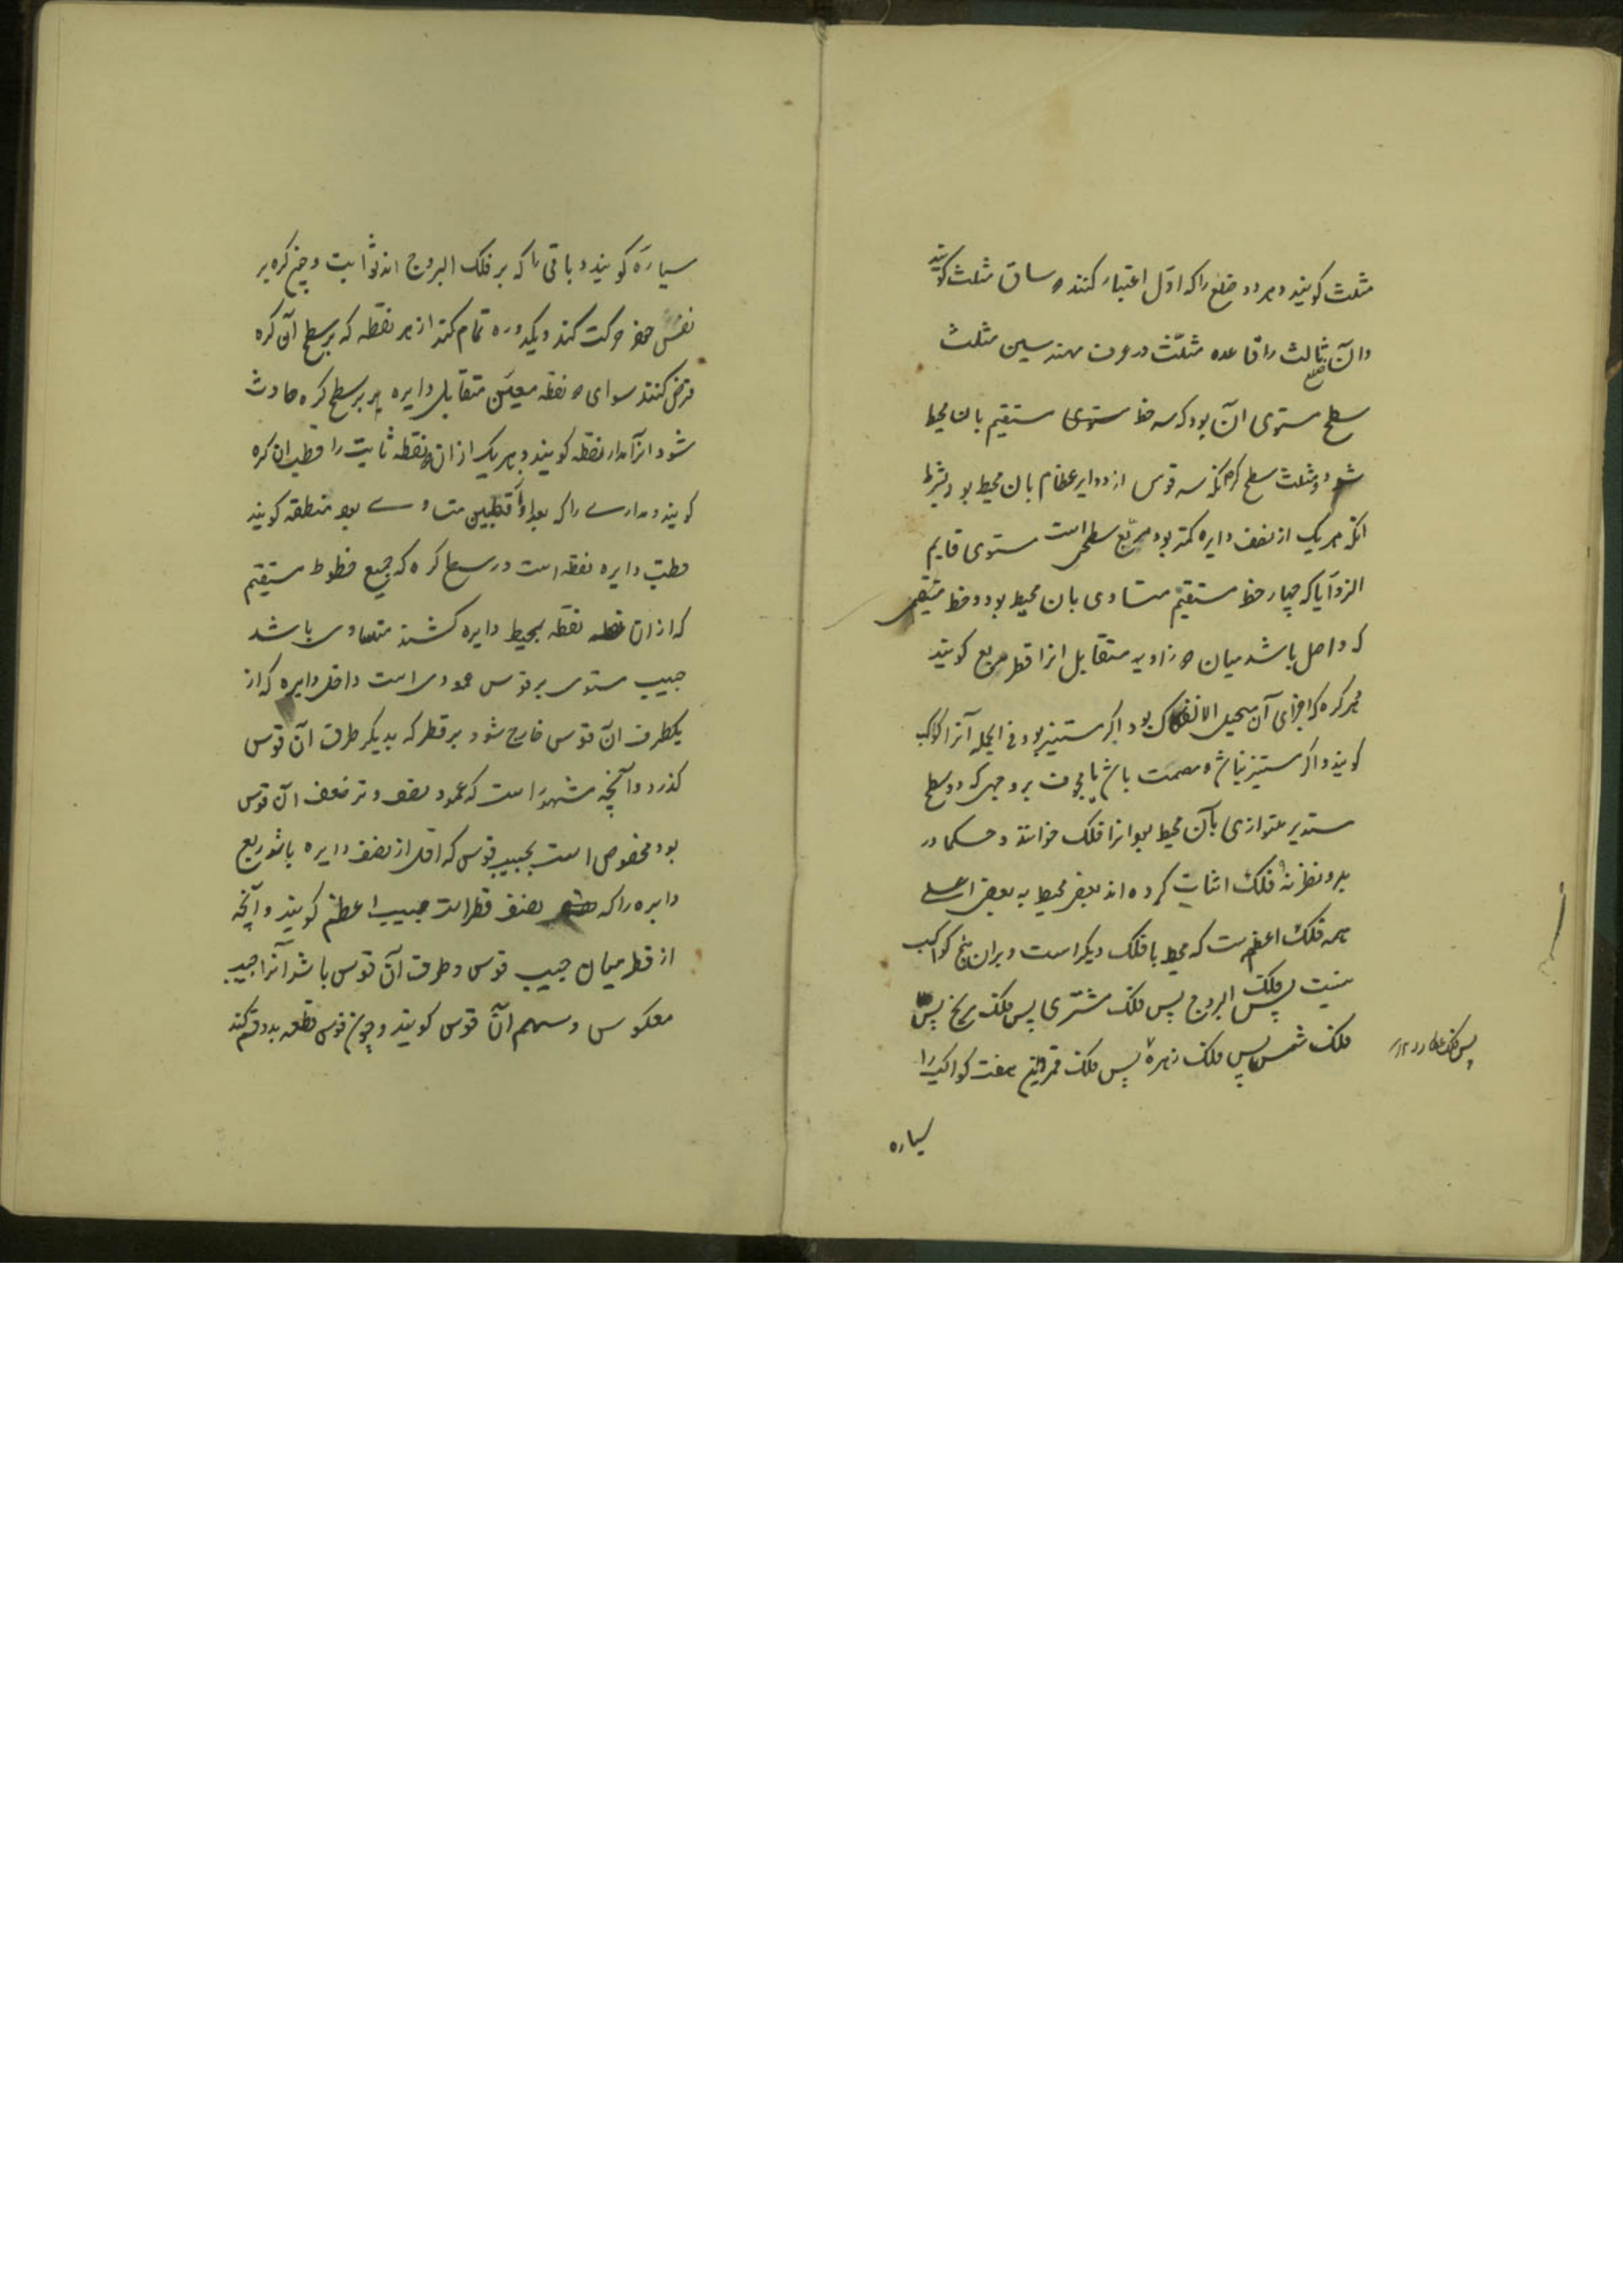 مثلث کویند و هر دو ضلع را که اول اعتبار کنند دو ساق مثلث کویند
وان ضلع ثالث را قاعده مثلث در عرف مهندسین مثلث
سطح مستوی آن بود که سه خط مستوی مستقیم بان محیط
شود و مثلث سطح کره آنکه سه قوس از دوایر عظام بان محیط بود بشرط
انکه هر یک از نصف دایره کمتر بود مربع سطحی است مستوی قایم
الزوایا که چهار خط مستقیم متساوی بان محیط بود و خط مستقیمی
که واصل باشد میان دو زاویه متقابل انرا قطر مربع کویند
هر کره که اجزای آن مستحیل الانفکاک بود اکر مستنیر بود فی الجمله آنرا کوکب
کویند و اکر مستنیر نباشد و مصمت باشد یا مجوف بر وجهی که دو سطح
مستدیر متوازی بآن محیط بود انرا فلک خوانند و حکما در
بدو نظر نه فلک اثبات کرده اند بعضی محیط به بعضی اعلی
همه فلک اعظم است که محیط با فلک دیکر است و بران هیچ کواکب
نیست پس فلک البروج پس فلک مشتری پس فلک مریخ پس
فلک شمس پس فلک زهره پس فلک قمر و این هفت کواکب را
پس فلک عطارد
سیاره
سیاره کویند و باقی را که بر فلک البروج اند ثوابت و چون کره بر
نفس خود حرکت کند و یکدوره تمام کند از هر نقطه که بر سطح آن کره
فرض کنند سوای دو نقطه معین متقابل دایره بر سطح کره حادث
شود انرا مدار نقطه کویند و هر یک از ان دو نقطه ثابت را قطب ان کره
کویند و مداری را که بعد او از قطبین متساوی بود منطقه کویند
قطب دایره نقطه است در سطح کره که جمیع خطوط مستقیم
که از ان نقطه بمحیط دایره کشند متساوی باشد
جیب مستوی هر قوس عمودی است داخل دایره که از
یکطرف آن قوس خارج شود بر قطر که بدیکر طرف آن قوس
کذرد و آنچه مشهور است که عمود نصف وتر ضعف آن قوس
بود مخصوص است بجیب قوس که اقل از نصف دایره باشد ربع
دایره را که نصف قطر است جیب اعظم کویند و آنچه
از قطر میان جیب قوس و طرف آن قوس باشد آنرا جیب
معکوس و سهم آن قوس کویند و چون قوس قطعه بدو قسم کند